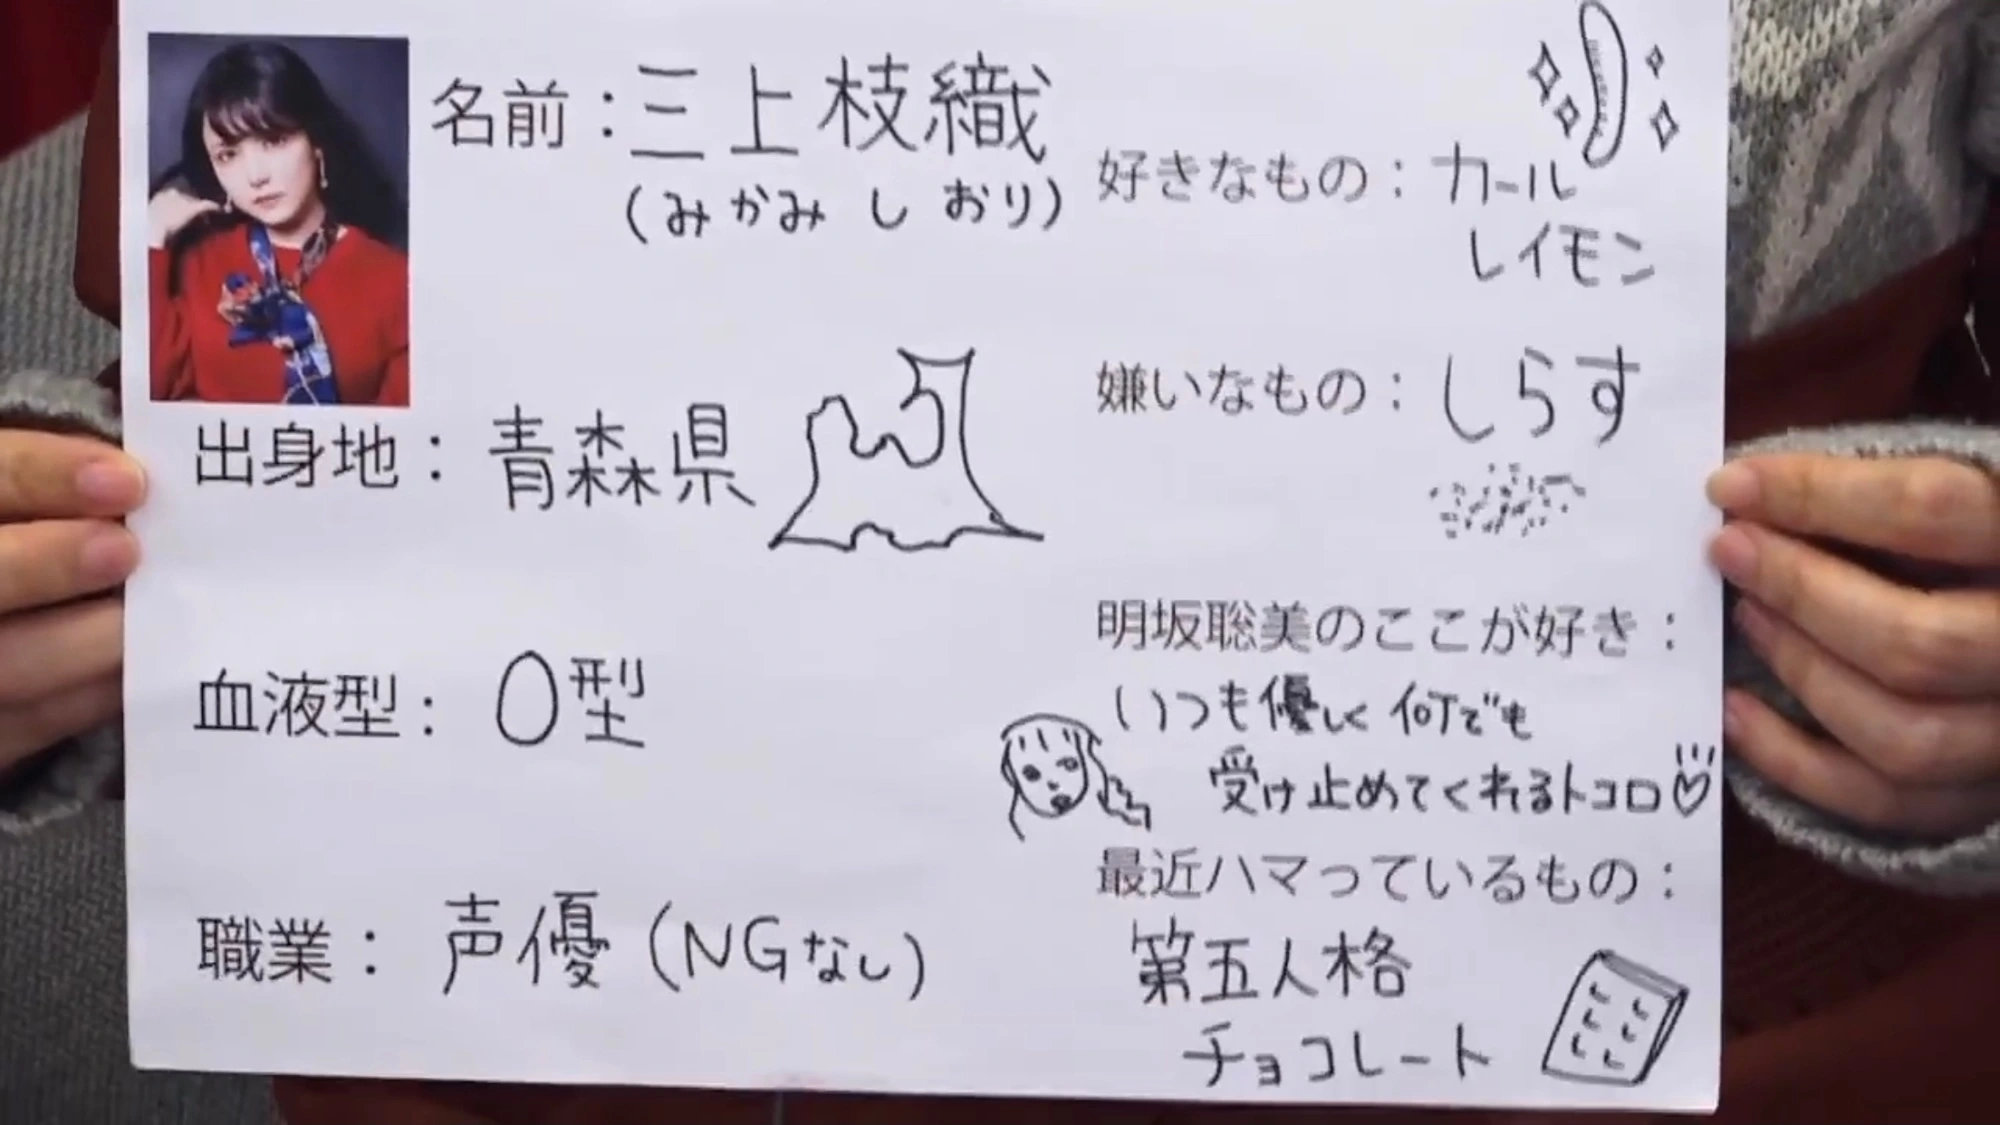 名前：三上枝織
(みかみ しおり)
出身地：青森県
血液型：O型
職業：声優(NGなし)
好きなもの：カール
レイモン
嫌いなもの：しらす
明坂聡美のここが好き：
いつも優しく何でも
受け止めてくれるトコロ♡
最近ハマっているもの：
第五人格
チョコレート